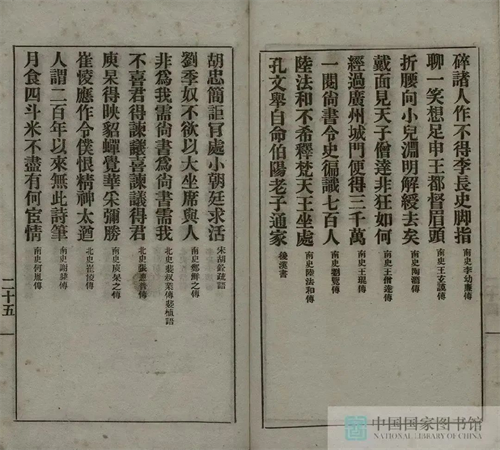 碎諸人作不得李長史脚指南史李幼廉傳
聊一笑想足申王都督眉頭南史王玄謨傳
折腰向小兒淵明解綬去矣南史陶潛傳
戴面見天子僧達非狂如何南史王僧達傳
經過廣州城門便得三千萬南史王琨傳
一閱尙書令史徧識七百人南史劉覽傳
陸法和不希釋梵天王坐處南史陸法和傳
孔文舉自命伯陽老子通家後漢書
胡忠簡詎宜處小朝廷求活宋胡銓疏語
劉季奴不欲以大坐席與人南史鄭鮮之傳
非我需尙書爲尙書需我北史裴叔業傳裴植語
不喜君得諫議喜諫議得君北史張
庾杲得映貂蟬覺華宋彌勝南史庾杲之傳
崔㥄應作令僕恨精神太遒北史崔㥄傳
人謂二百年以來無此詩筆南史謝傳
月食四斗米不盡有何宦情南史何胤傳
二十五
中国国家图书馆
NATIONAL LIBRARY OF CHINA